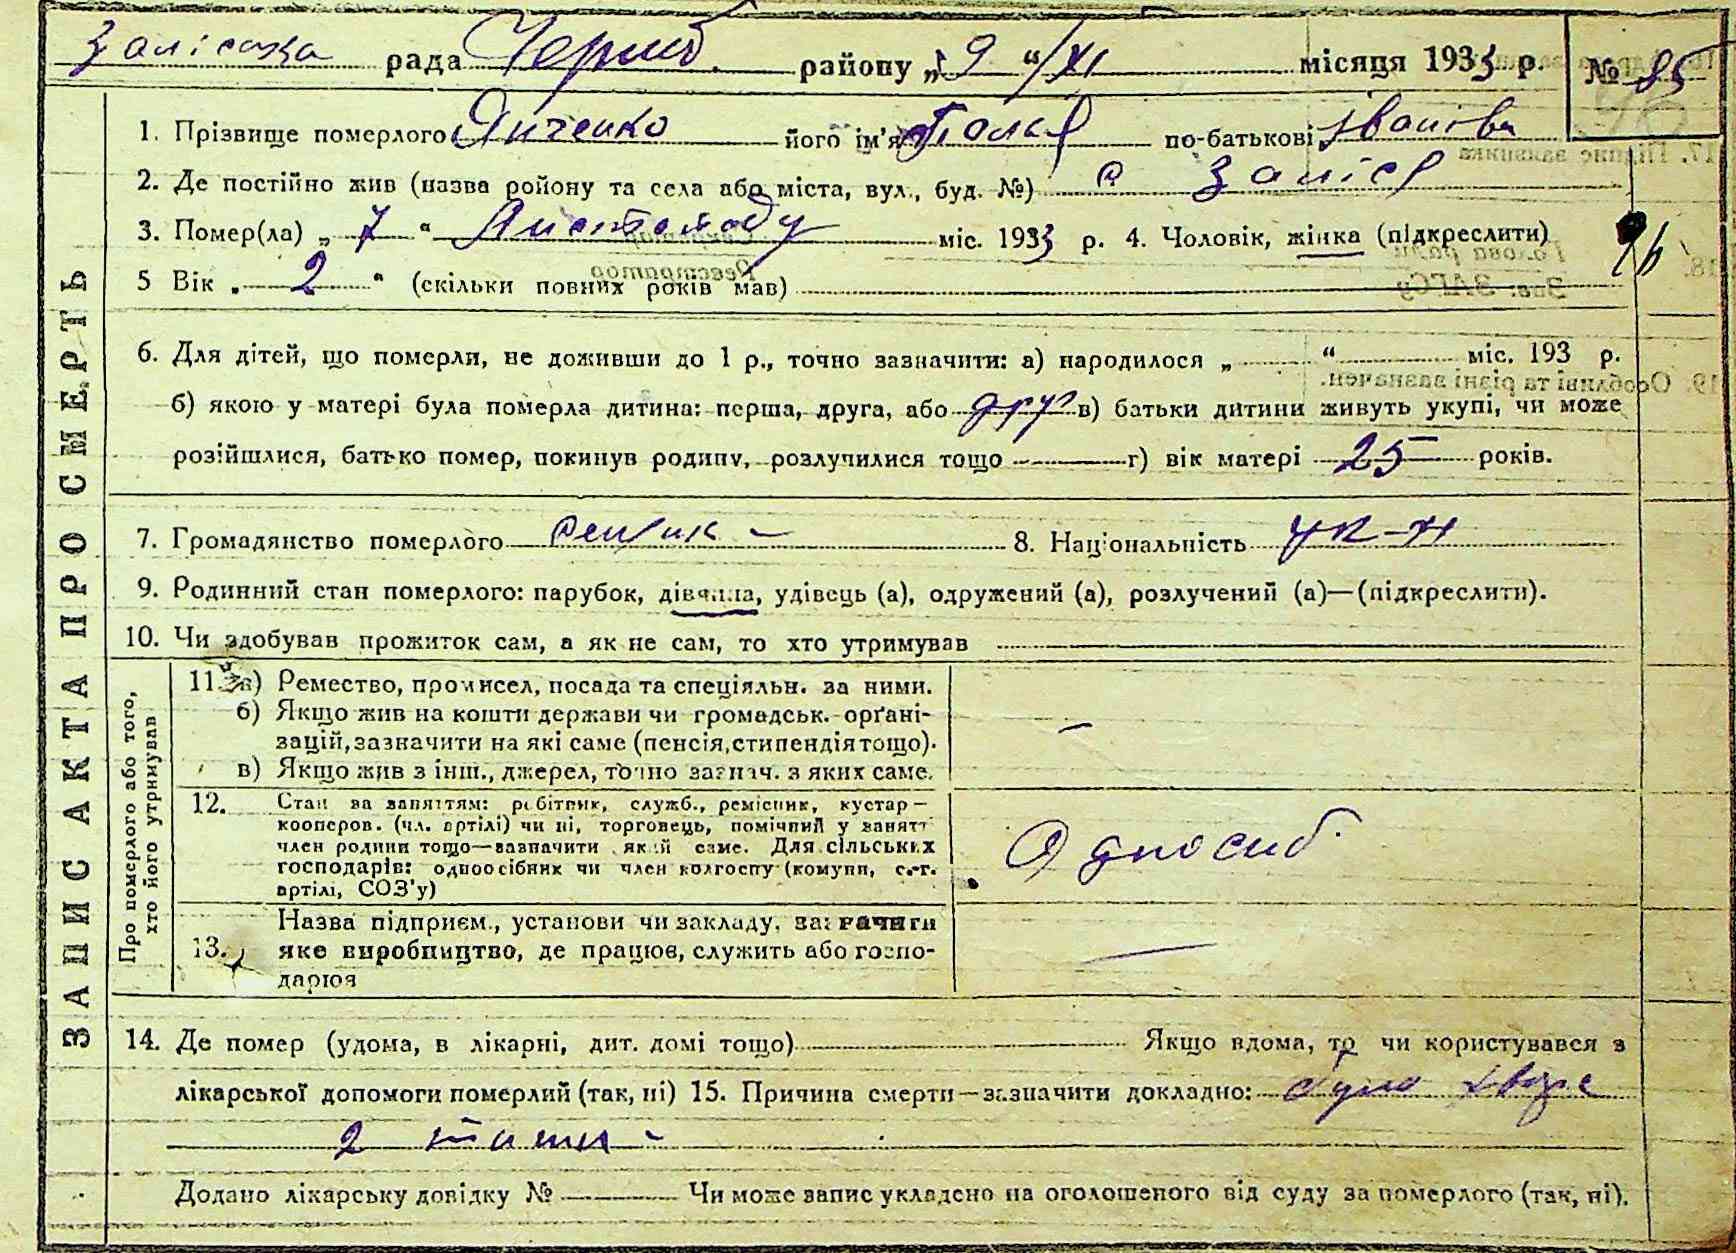 Заліська рада Чорноб. району „9“ XI місяця 1933 р. № 85
1. Прізвище померлого Янченко його ім'я Поля по-батькові Іванівна
2. Де постійно жив (назва ройону та села або міста, вул., буд. №) с Залісся
3. Помер(ла) „7“ Листопаду міс. 1933 р. 4. Чоловік, жінка (підкреслити)
5 Вік „2“ (скільки повних років мав)
6. Для дітей, що померли, не доживши до 1 р., точно зазначити: а) народилося „ “ міс. 193 р.
б) якою у матері була померла дитина: перша, друга, або друг в) батьки дитини живуть укупі, чи може
розійшлися, батько помер, покинув родину, розлучилися тощо г) вік матері 25 років.
7. Громадянство померлого 8. Національність укр-н
9. Родинний стан померлого: парубок, дівчина, удівець (а), одружений (а), розлучений (а)—(підкреслити).
10. Чи здобував прожиток сам, а як не сам, то хто утримував
ЗАПИС АКТА ПРО СМЕРТЬ
Про померлого або того, хто його утримував
11. а) Ремество, промисел, посада та спеціяльн. за ними.
б) Якщо жив на кошти держави чи громадськ. орґані-
зацій, зазначити на які саме (пенсія, стипендія тощо).
в) Якщо жив з інш., джерел, точно зазнач. з яких саме.
12. Стан за заняттям: робітник, служб., ремісник, кустар—
кооперов. (чл. артілі) чи ні, торговець, помічний у занятт
член родини тощо—зазначити який саме. Для сільських
господарів: одноосібник чи член колгоспу (комуни, с.-г.
артілі, СОЗ'у)
Одноосиб.
Назва підприєм., установи чи закладу, зазначити
13. яке виробництво, де працює, служить або госпо-
дарює
14. Де помер (удома, в лікарні, дит. домі тощо) Якщо вдома, то чи користувався з
лікарської допомоги померлий (так, ні) 15. Причина смерти—зазначити докладно: було хворе
2 тижні
Додано лікарську довідку № Чи може запис укладено на оголошеного від суду за померлого (так, ні).